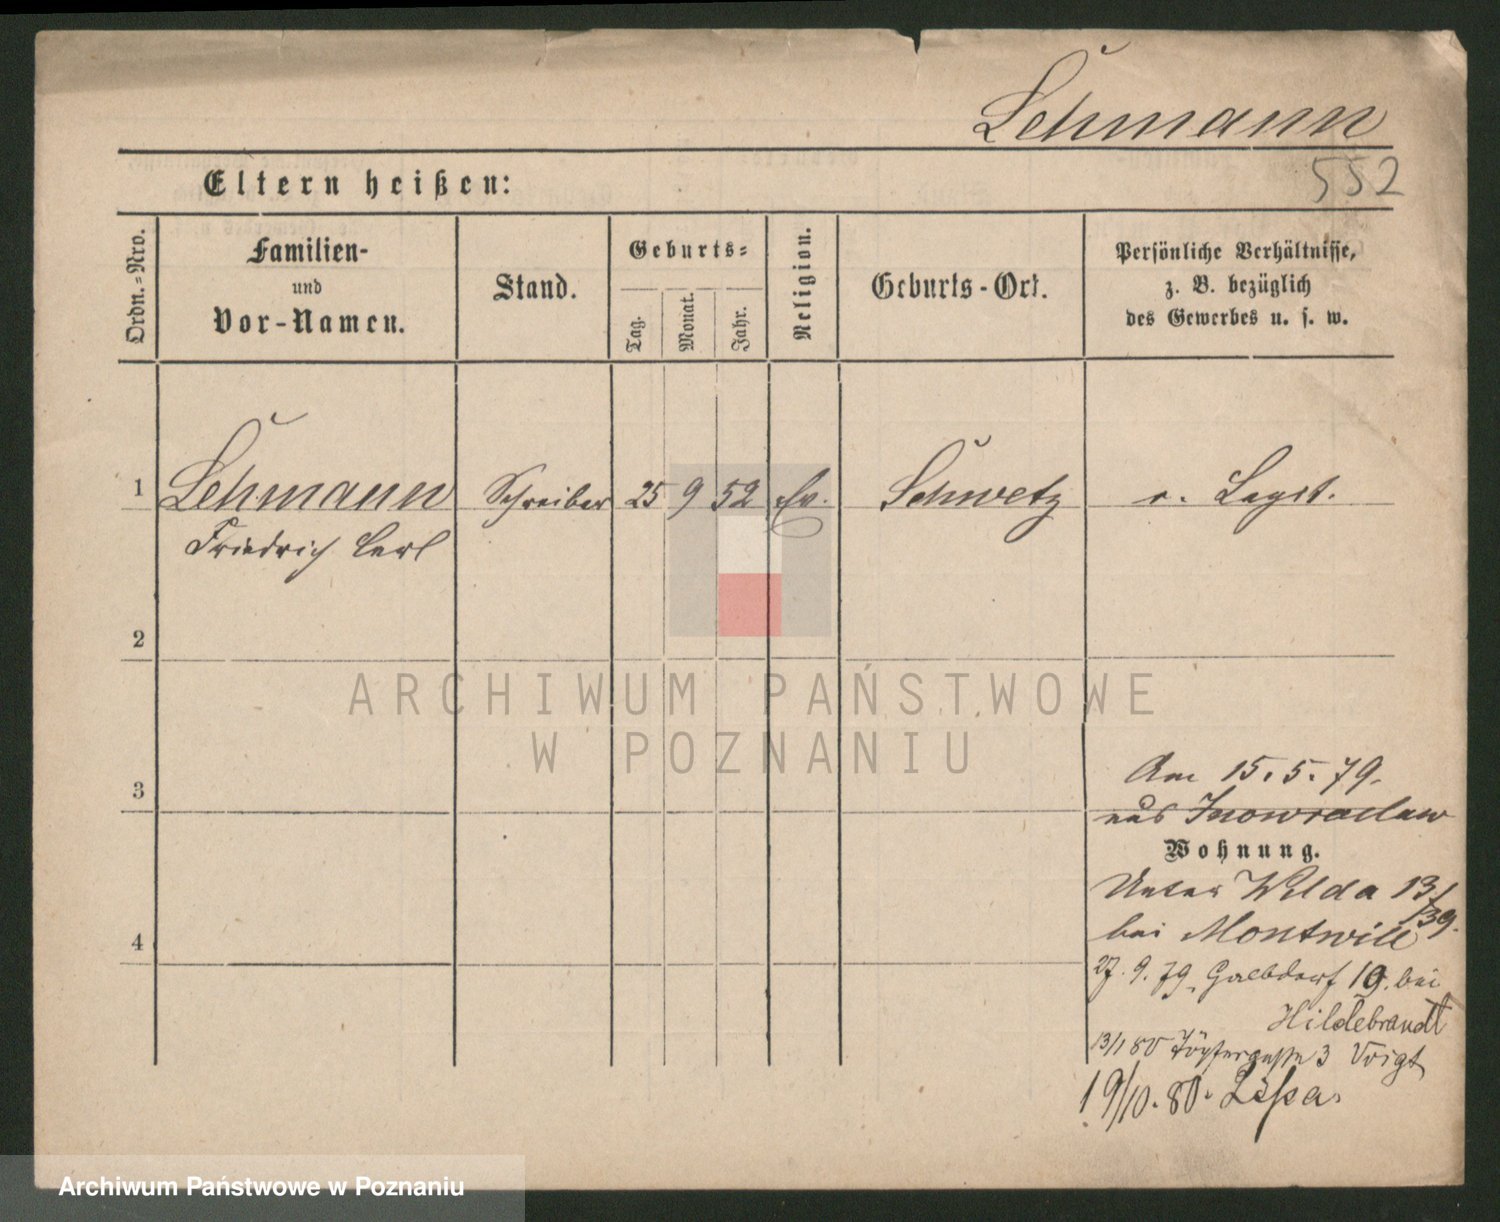 Lehmann
552
Eltern heißen:
Ordn.-Nro.
Familien-
und
Vor-Namen.
Stand.
Geburts-
Tag.
Monat.
Jahr.
Religion.
Geburts-Ort.
Persönliche Verhältnisse,
z. B. bezüglich
des Gewerbes u. s. w.
1 Lehmann Schreiber 25 9 52 Ev. Schwetz
Friedrich Carl
2
ARCHIWUM PAŃSTWOWE
W POZNANIU
3
Am 15.5.79.
aus Inowraclaw
Wohnung.
Unter Wilda 13/39.
bei Montwill
4
27.9.79. 19. bei
Hildebrandt
13/1 80 3 Voigt
19/10.80. Lissa.
Archiwum Państwowe w Poznaniu